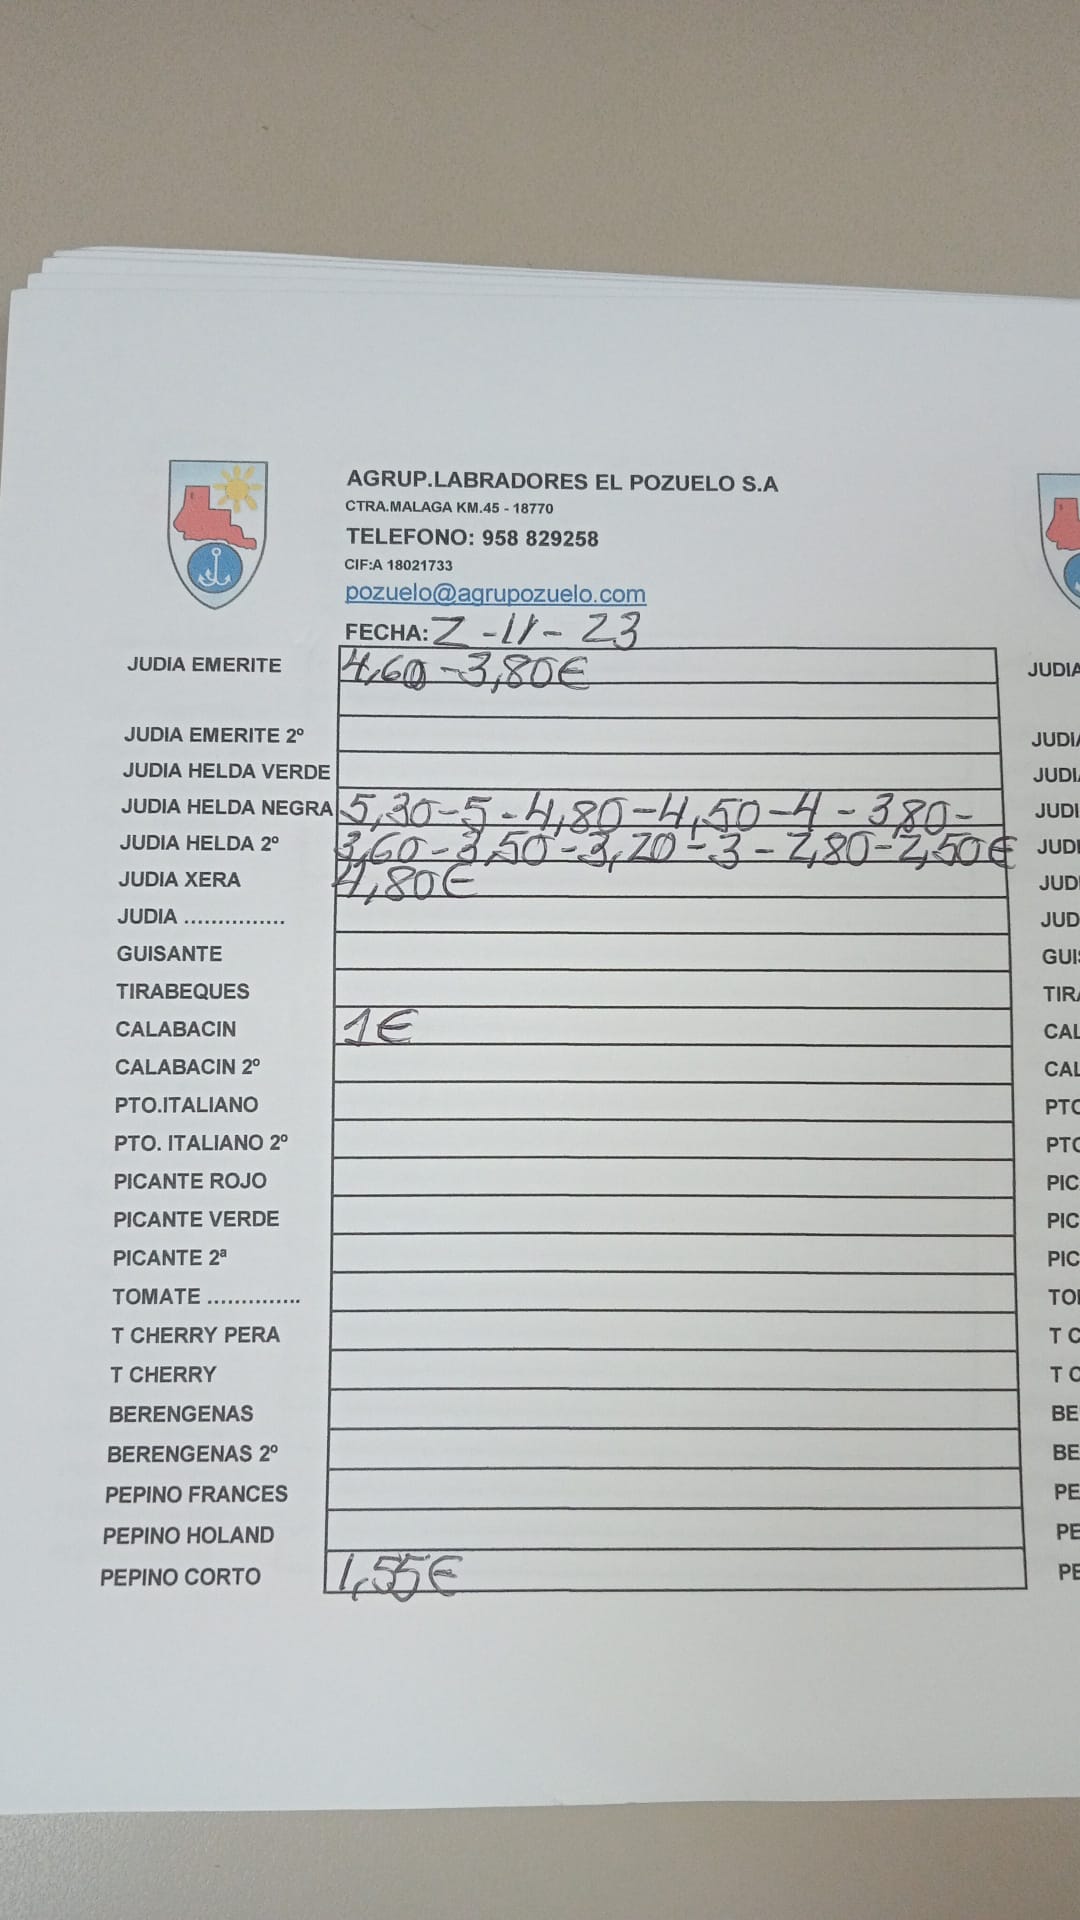 AGRUP.LABRADORES EL POZUELO S.A
CTRA.MALAGA KM.45 - 18770
TELEFONO: 958 829258
CIF:A 18021733
pozuelo@agrupozuelo.com
FECHA: 2-11-23
JUDIA EMERITE 4,60-3,80€
JUDIA EMERITE 2º
JUDIA HELDA VERDE
JUDIA HELDA NEGRA 5,30-5-4,80-4,50-4-3,80-
JUDIA HELDA 2º 3,60-3,50-3,20-3-2,80-2,50€
JUDIA XERA 4,80€
JUDIA ...............
GUISANTE
TIRABEQUES
CALABACIN 1€
CALABACIN 2º
PTO.ITALIANO
PTO. ITALIANO 2º
PICANTE ROJO
PICANTE VERDE
PICANTE 2ª
TOMATE ..............
T CHERRY PERA
T CHERRY
BERENGENAS
BERENGENAS 2º
PEPINO FRANCES
PEPINO HOLAND
PEPINO CORTO 1,55€
JUDIA